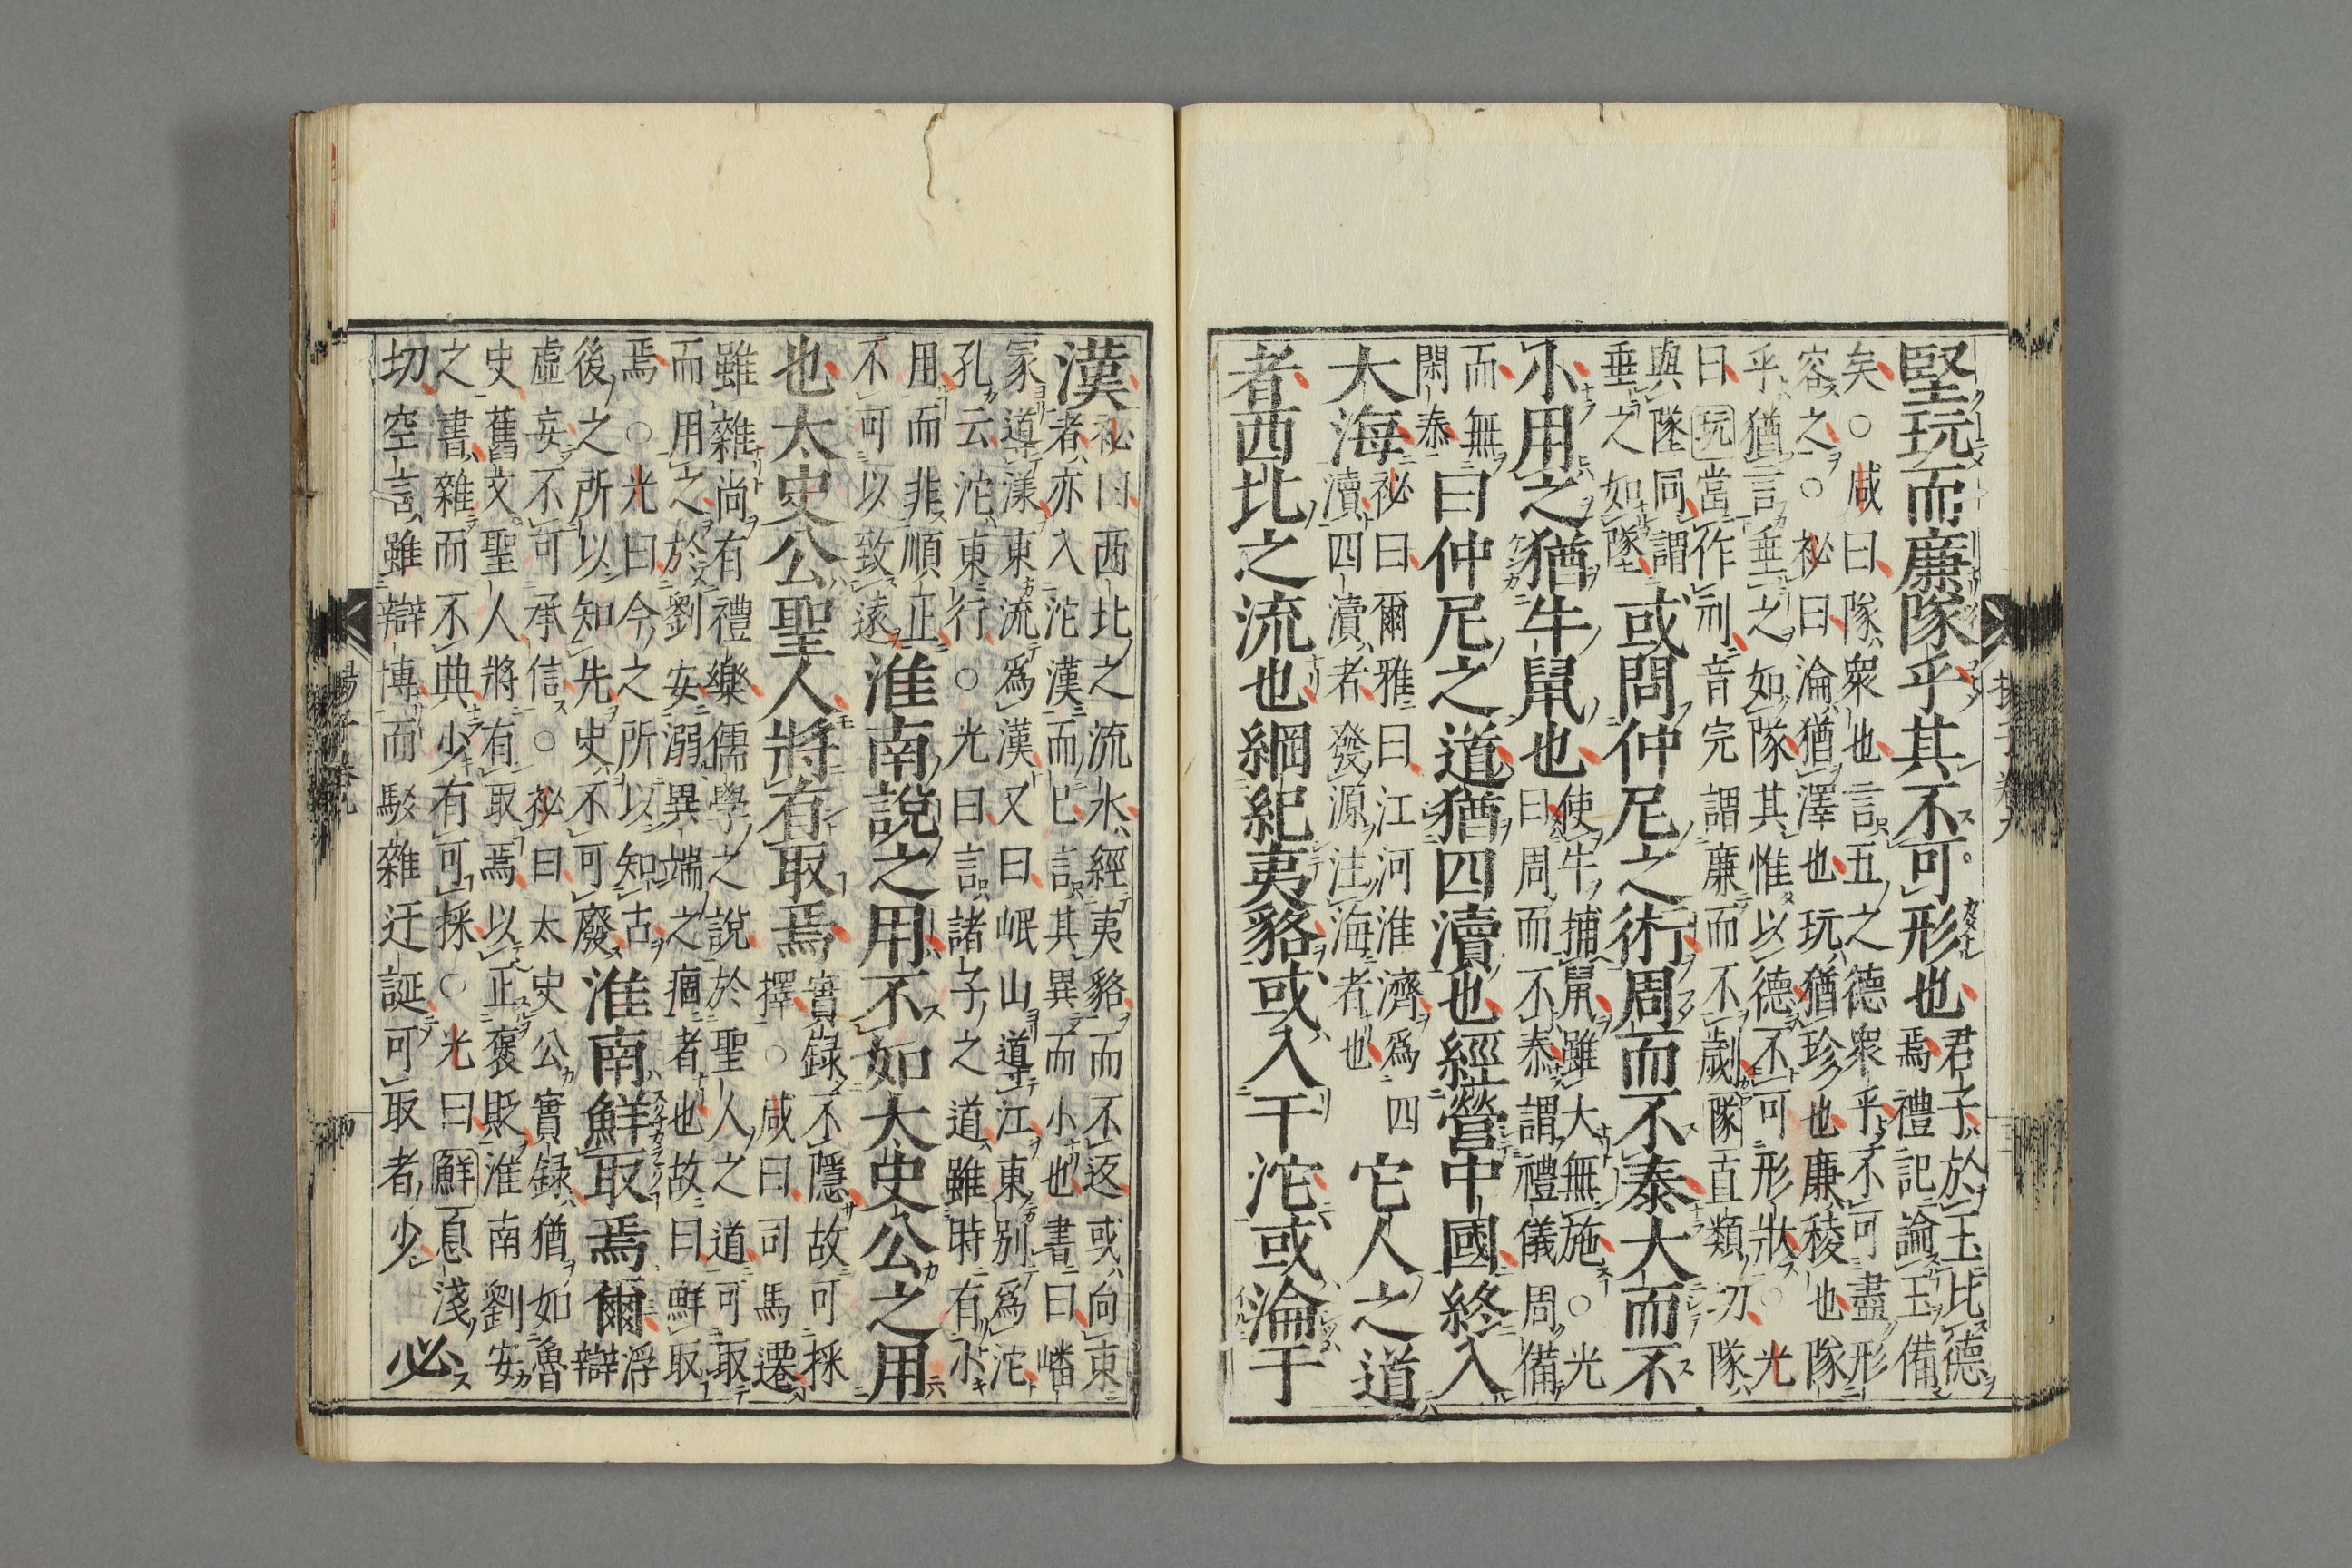 堅玩而廉隊乎其不可形也
君子於玉比德
焉禮記論玉備
矣○咸曰隊衆也言五之德衆乎不可盡形
容之○祕曰淪猶澤也玩猶珍也廉稜也隊
乎猶言垂之如隊其惟以德不可形狀○光
曰玩當作刓音完謂廉而不劌隊直類切隊
與隧同謂
垂之如隧
或問仲尼之術周而不泰大而不
小用之猶牛鼠也
使牛捕鼠雖大無施○光
曰周而不泰謂禮儀周備
而無
閑泰
曰仲尼之道猶四瀆也經營中國終入
大海
祕曰爾雅曰江河淮濟爲四
瀆四瀆者發源注海者也
它人之道
者西北之流也綱紀夷貉或入于沱或淪于
漢
祕曰西北之流水經夷貉而不返或向東
者亦入沱漢而已言其異而小也書曰嶓
冢道漾東流爲漢又曰岷山道江東別爲沱
孔云沱東行○光曰言諸子之道雖時有小
用而非順正
不可以致遠
淮南說之用不如大史公之用
也太史公聖人將有取焉
實録不隱故可採
擇○咸曰司馬遷
雖雜尚有禮樂儒學之說於聖人之道可取
而用之於劉安溺異端之痼者也故曰鮮取
焉○光曰今之所以知古
後之所以知先史不可廢
淮南鮮取焉爾
浮
辯
虛妄不可承信○祕曰太史公實録猶如魯
史舊文聖人將有取焉以正褒貶淮南劉安
之書雜而不典少有可採○光曰鮮息淺
切空言雖辯博而駁雜迂誕可取者少
必